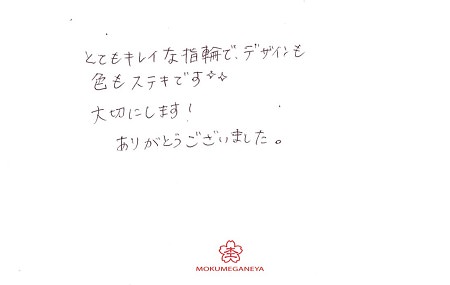 とてもキレイな指輪で、デザインも
色もステキです✧✧
大切にします！
ありがとうございました。
MOKUMEGANEYA